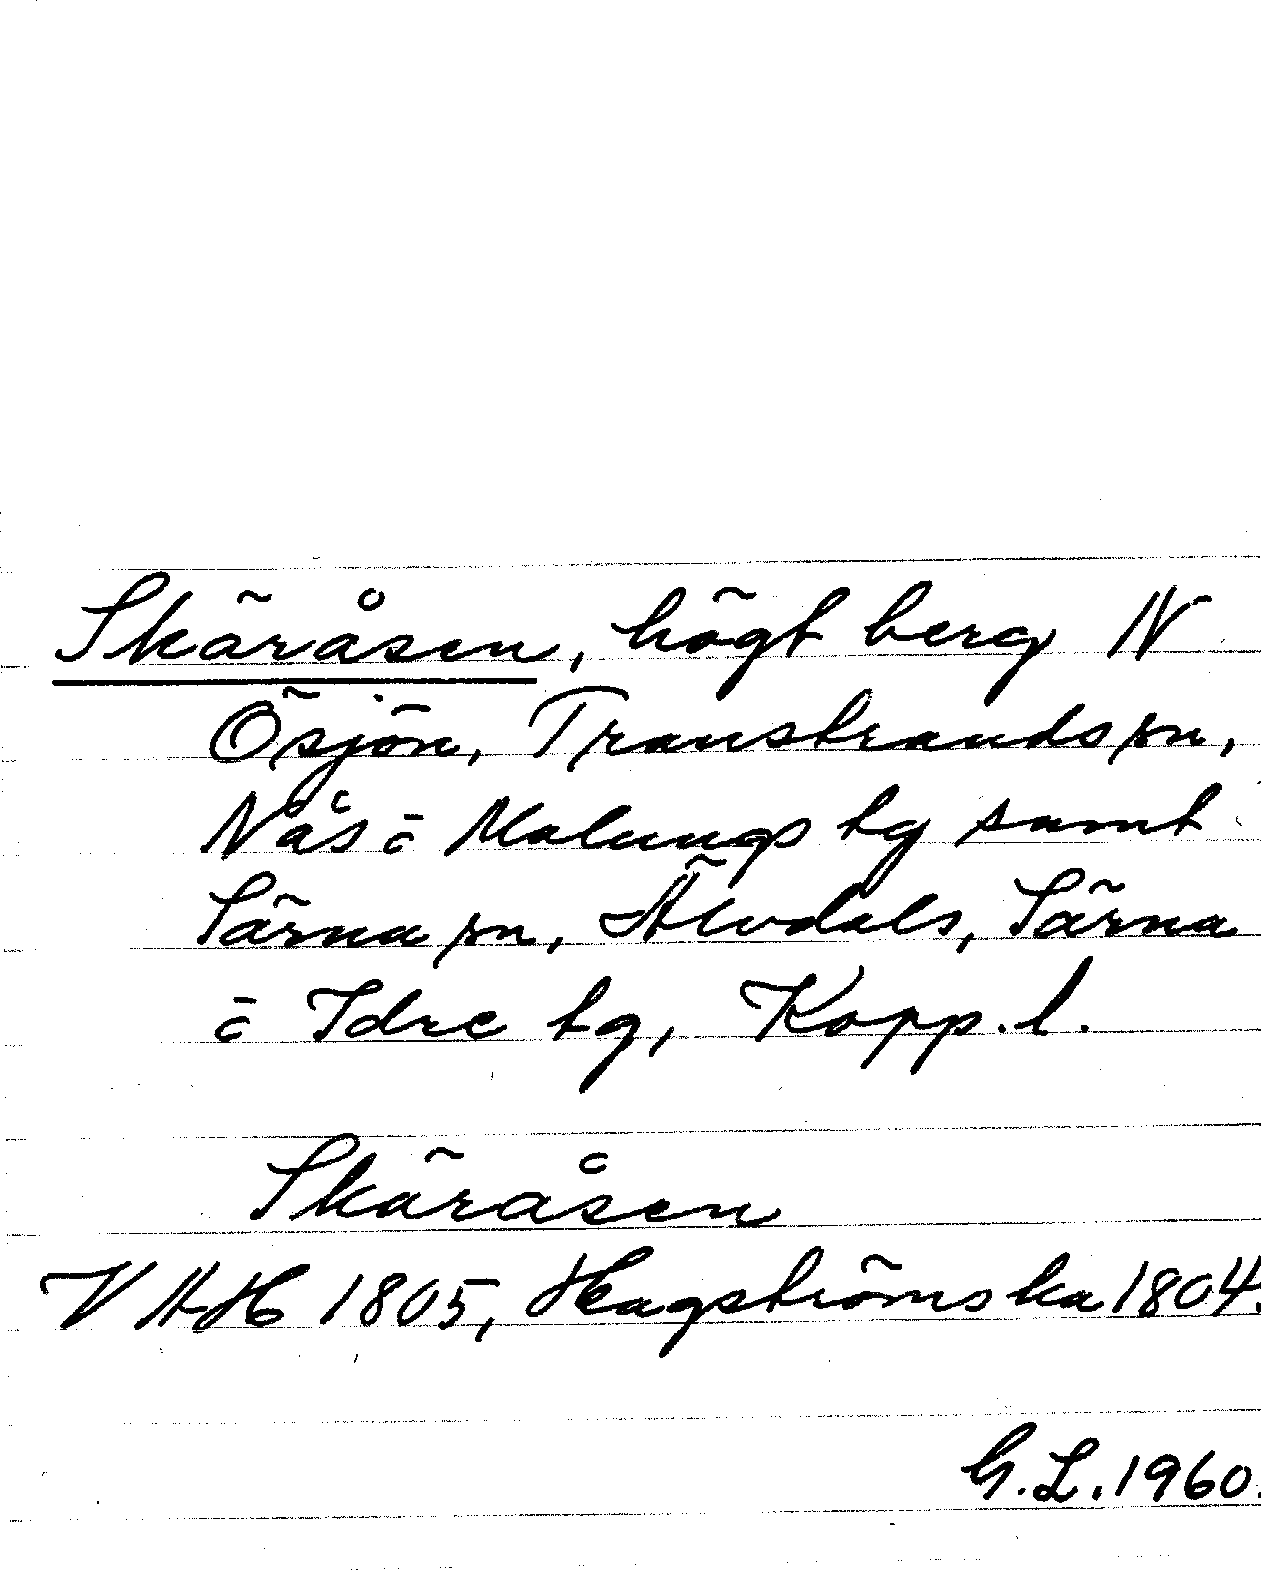 Skäråsen, högt berg N
Ösjön, Transtrands sn,
Nås o Malungs tg samt
Särna sn, Älvdals, Särna
o Idre tg, Kopp. l.
Skäråsen
VAH 1805, Hagströmska 1804.
G.L. 1960.